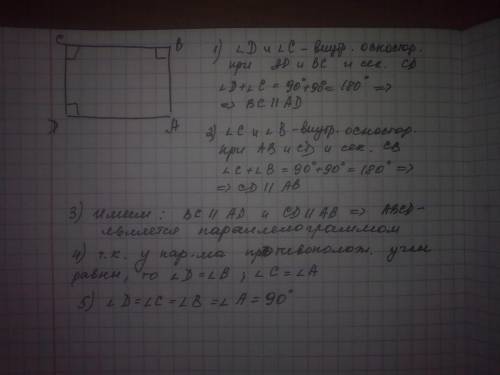 C B
D A
1) ∠D и ∠C – внутр. одностор.
при AD и BC и сек. CD
∠D+∠C = 90°+90° = 180° =>
=> BC || AD
2) ∠C и ∠B – внутр. одностор.
при AB и CD и сек. CB
∠C + ∠B = 90°+90° = 180° =>
=> CD || AB
3) Имеем: BC || AD и CD || AB => ABCD-
является параллелограммом
4) т.к. у пар-ма противополож. углы
равны, то ∠D = ∠B ; ∠C = ∠A
5) ∠D = ∠C = ∠B = ∠A = 90°